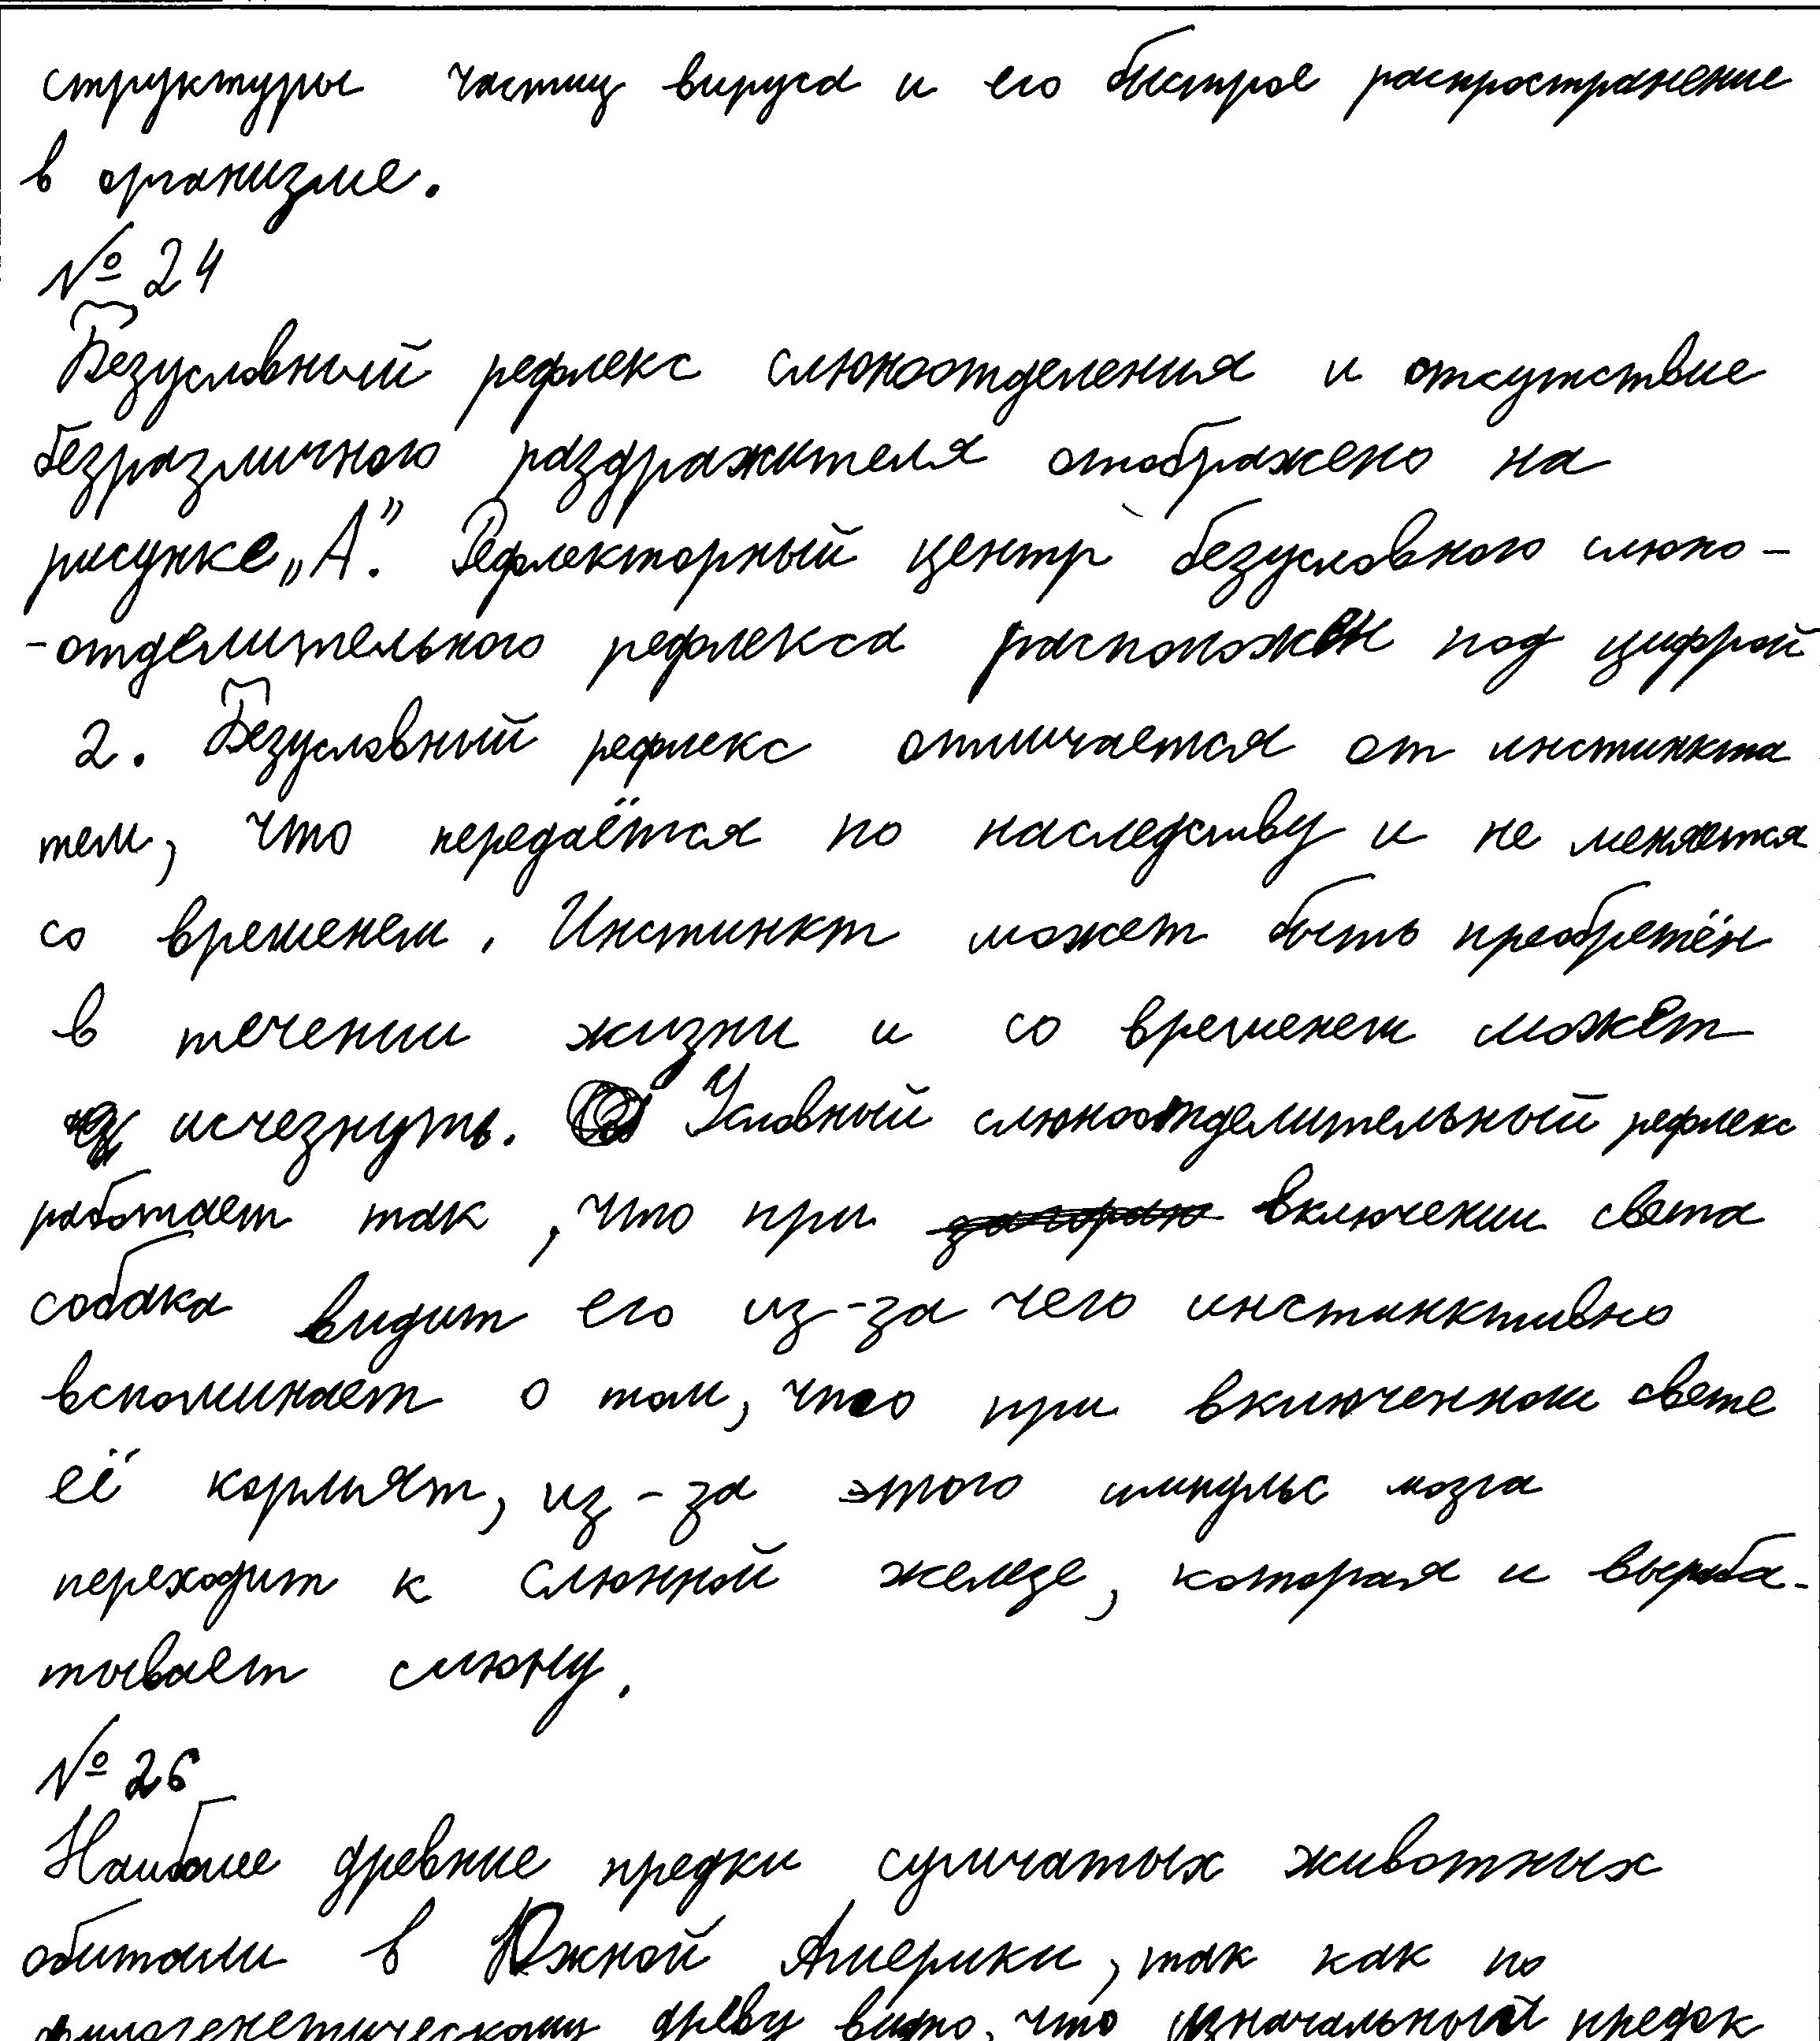 структуры частиц вируса и его быстрое распространение
в организме.
№ 24
Безусловный рефлекс слюноотделения и отсутствие
безразличного раздражителя отображено на
рисунке „А”. Рефлекторный центр безусловного слюно-
-отделительного рефлекса расположен под цифрой
2. Безусловный рефлекс отличается от инстинкта
тем, что передаётся по наследству и не меняется
со временем. Инстинкт может быть преобретён
в течении жизни и со временем может
исчезнуть. Условный слюноотделительный рефлекс
работает так, что при включении света
собака видит его из-за чего инстинктивно
вспоминает о том, что при включенном свете
её кормят, из-за этого импульс мозга
переходит к слюнной железе, которая и выраба-
тывает слюну.
№ 26
Наиболее древние предки сумчатых животных
обитали в Южной Америки, так как по
филогенетическому древу видно, что изначальный предок